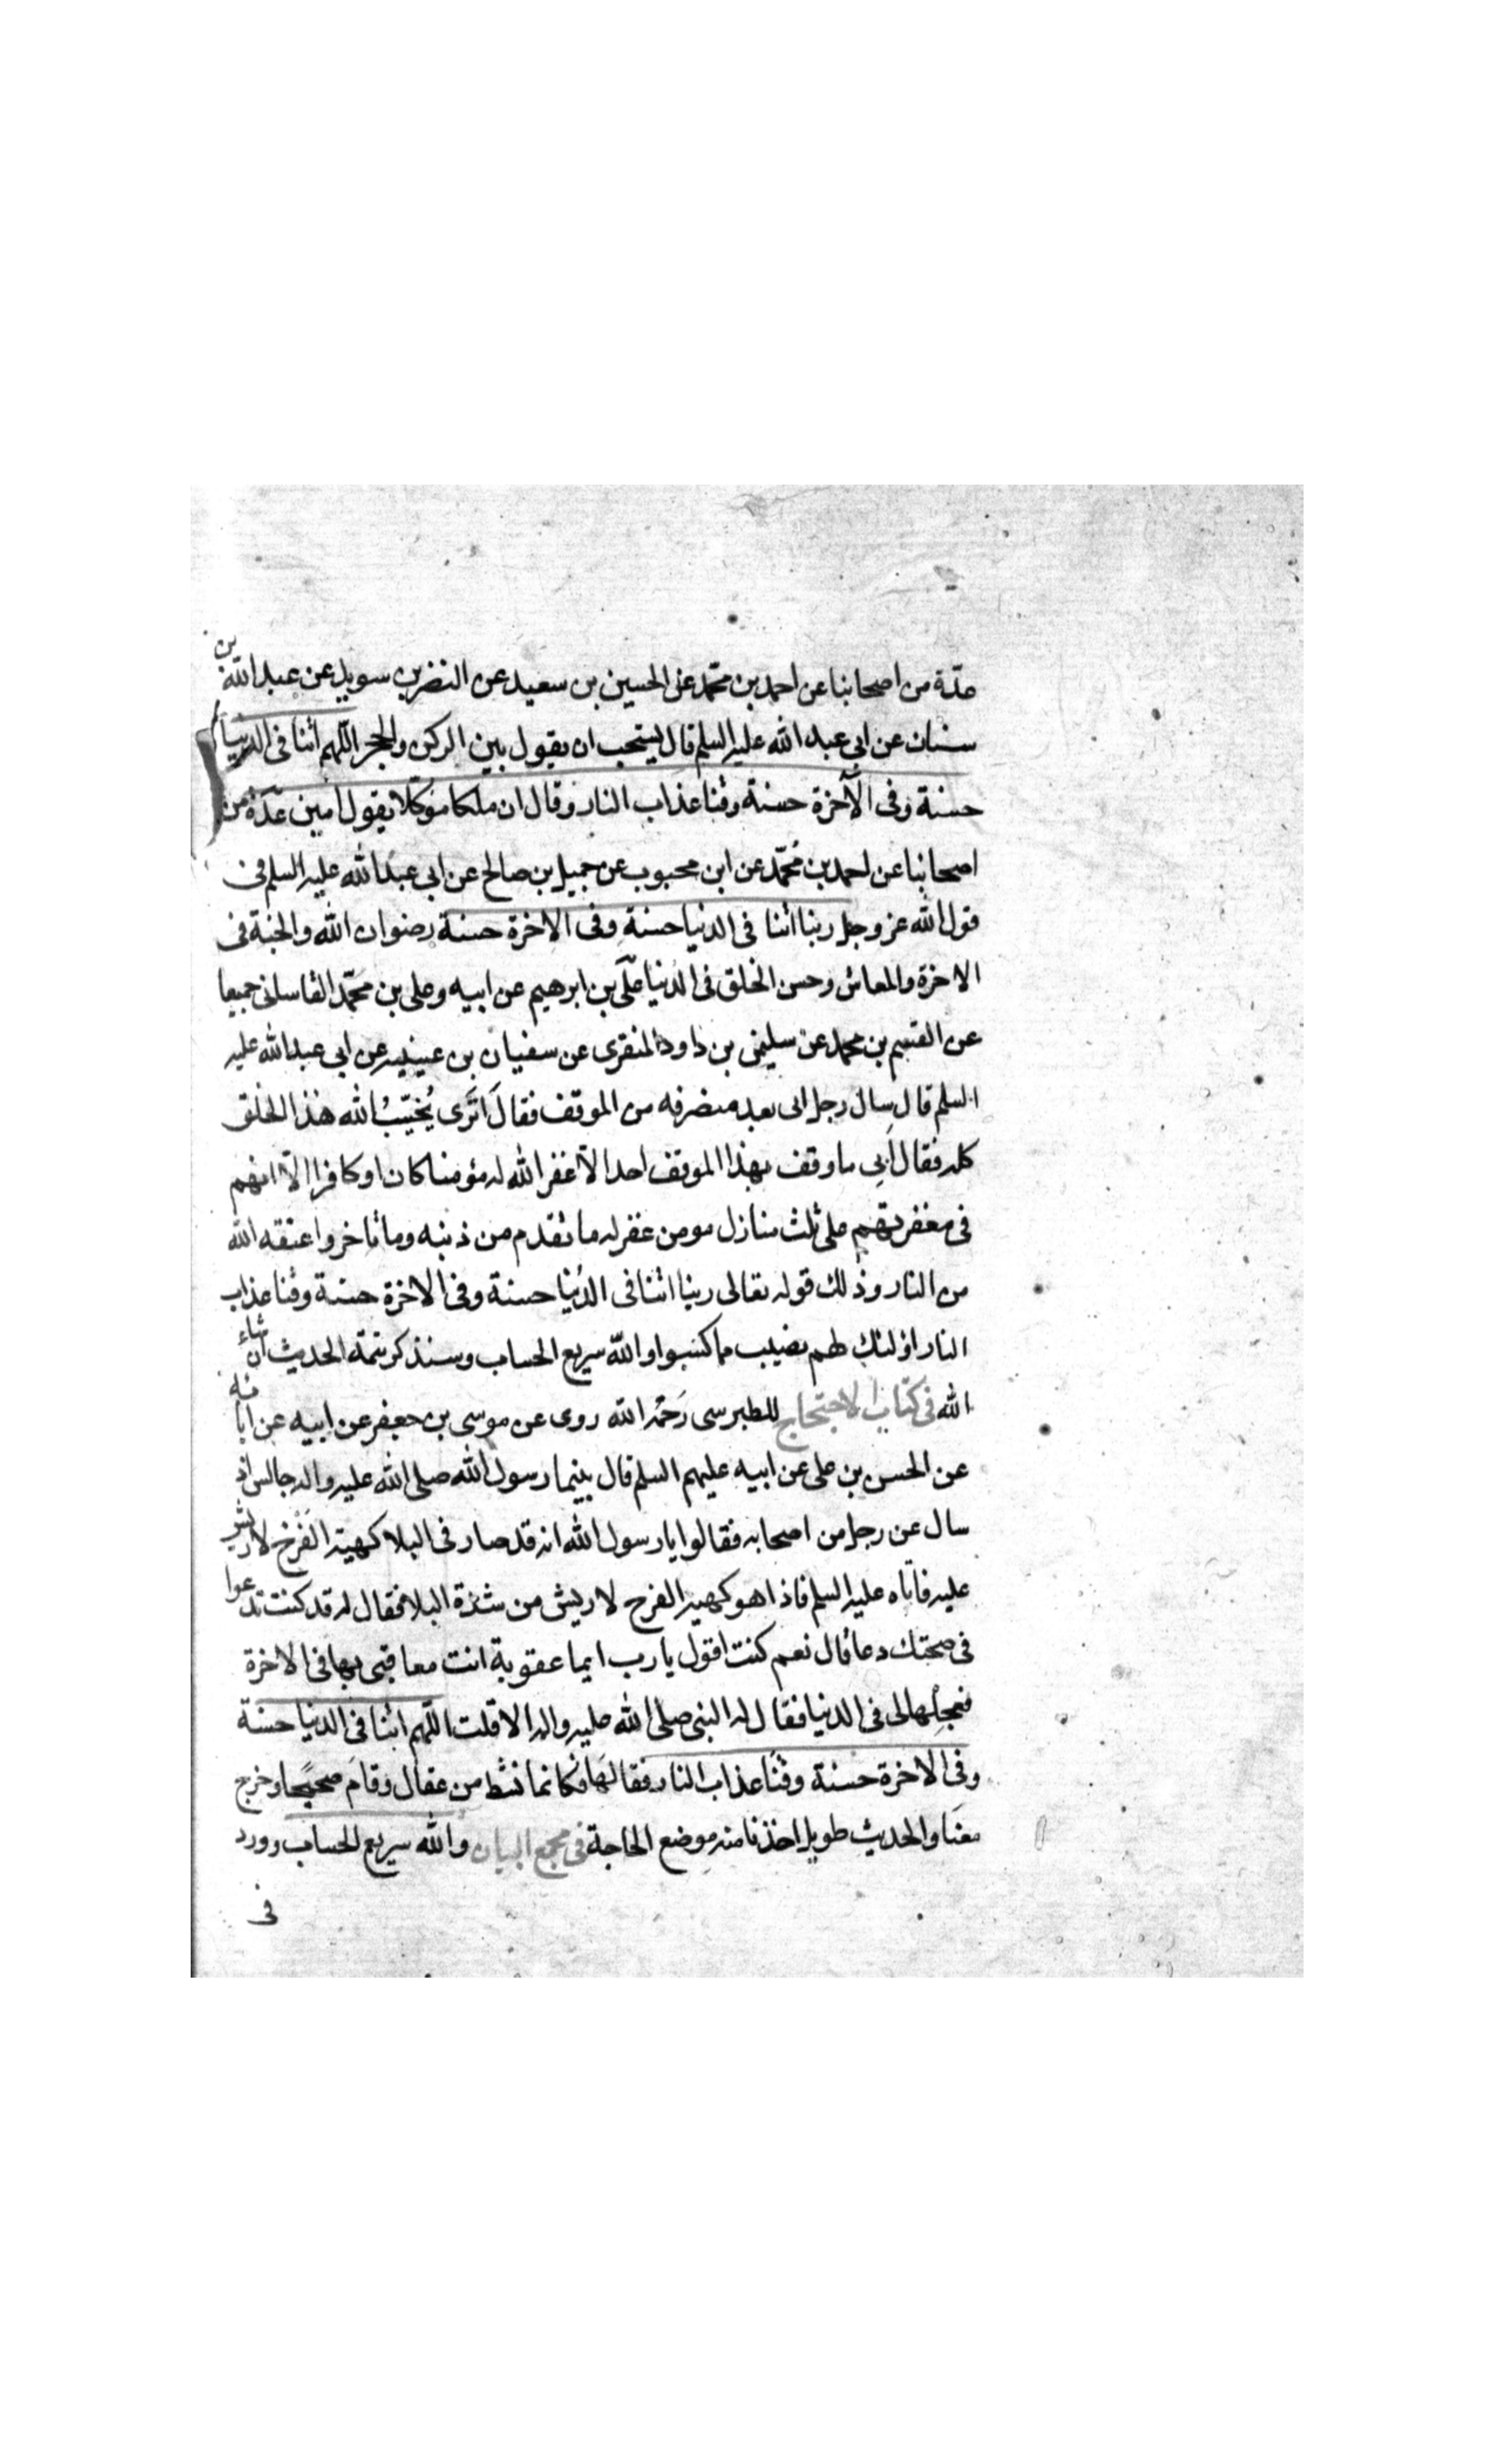 عدة من اصحابنا عن احمد بن محمد عن الحسين بن سعيد عن النضر بن سويد عن عبد الله بن
سنان عن ابي عبد الله عليه السلم قال يستحب ان يقول بين الركن والحجر اللهم اتنا في الدنيا
حسنة وفي الآخرة حسنة وقنا عذاب النار وقال ان ملكا موكلا يقول امين عدة من
اصحابنا عن احمد بن محمد عن ابن محبوب عن جميل بن صالح عن ابي عبد الله عليه السلم في
قول الله عز وجل ربنا اتنا في الدنيا حسنة وفي الاخرة حسنة رضوان الله والجنة في
الاخرة والمعاش وحسن الخلق في الدنيا علي بن ابرهيم عن ابيه وعلي بن محمد القاساني جميعا
عن القسم بن محمد عن سليمن بن داود المنقري عن سفيان بن عيينه عن ابي عبد الله عليه
السلم قال سال رجل ابى بعد منصرفه من الموقف فقال اترى يخيب الله هذا الخلق
كله فقال ابي ما وقف بهذا الموقف احد الا غفر الله له مؤمنا كان او كافرا الا انهم
في مغفرتهم على ثلث منازل مومن غفر له ما تقدم من ذنبه وما تاخر واعتقه الله
من النار وذلك قوله تعالى ربنا اتنا في الدنيا حسنة وفي الاخرة حسنة وقنا عذاب
النار اولئك لهم نصيب مما كسبوا والله سريع الحساب وسنذكر تتمة الحديث ان شاء
الله في كتاب الاحتجاج للطبرسى رحمه الله روى عن موسى بن جعفر عن ابيه عن ابائه
عن الحسن بن على عن ابيه عليهم السلم قال بينما رسول الله صلى الله عليه واله جالس اذ
سال عن رجل من اصحابه فقالوا يا رسول الله انه قد صار في البلا كهيئة الفرخ لا ريش
عليه فاتاه عليه السلم فاذا هو كهيئه الفرخ لا ريش من شدة البلا فقال له قد كنت تدعوا
في صحتك دعا قال نعم كنت اقول يا رب ايما عقوبة انت معاقبى بها في الاخرة
فعجلها لى في الدنيا فقال له النبى صلى الله عليه واله الا قلت اللهم اتنا في الدنيا حسنة
وفي الاخرة حسنة وقنا عذاب النار فقالها فكانما نشط من عقال وقام صحيحا وخرج
معنا والحديث طويل اخذنا منه موضع الحاجة في مجمع البيان والله سريع الحساب وورد
في